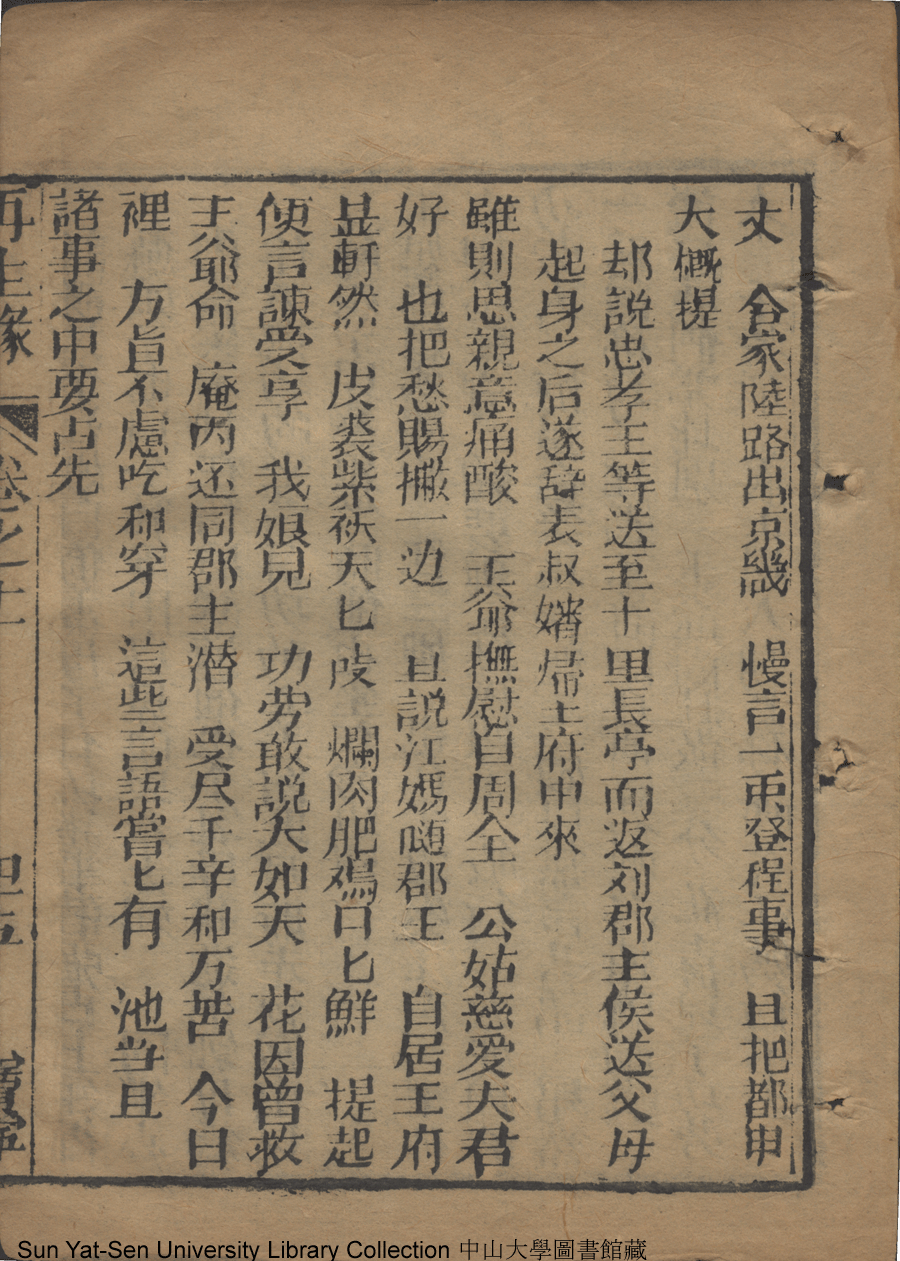 丈　合家陸路出京畿　慢言一衆登程事　且把都中
大概提
却説忠孝王等送至十里長亭而返刘郡主侯送父母
起身之后遂辞表叔嬸帰王府中來
雖則思親意痛酸　王爷撫慰自周全　公姑慈愛夫君
好　也把愁腸撇一边　且説江媽随郡王　自居王府
益軒然　皮裘紫袄天匕　爛肉肥鳮口匕鮮　提起
便言諫受享　我娘兒　功劳敢説大如天　花因曾救
王爺命　庵内还同郡主潜　受尽千辛和万苦　今日
裡　方眞不慮吃和穿　這些言語嘗匕有　池当且
諸事之中要占先
再生缘　卷之十　四五　寳寧
Sun Yat-Sen University Library Collection 中山大學圖書館藏